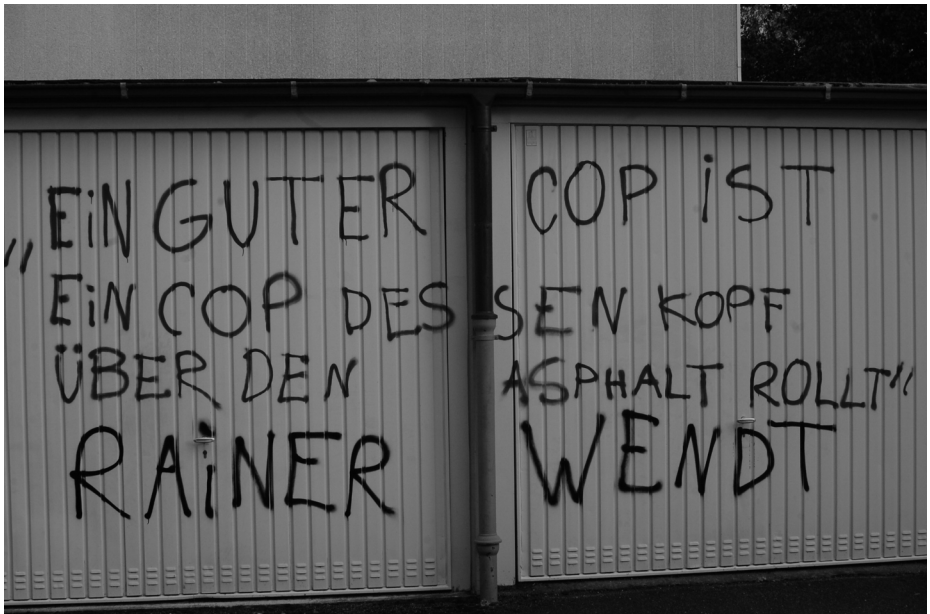 „EiN GUTER COP iST
EiN COP DESSEN KOPF
ÜBER DEN ASPHALT ROLLT“
RAiNER WENDT